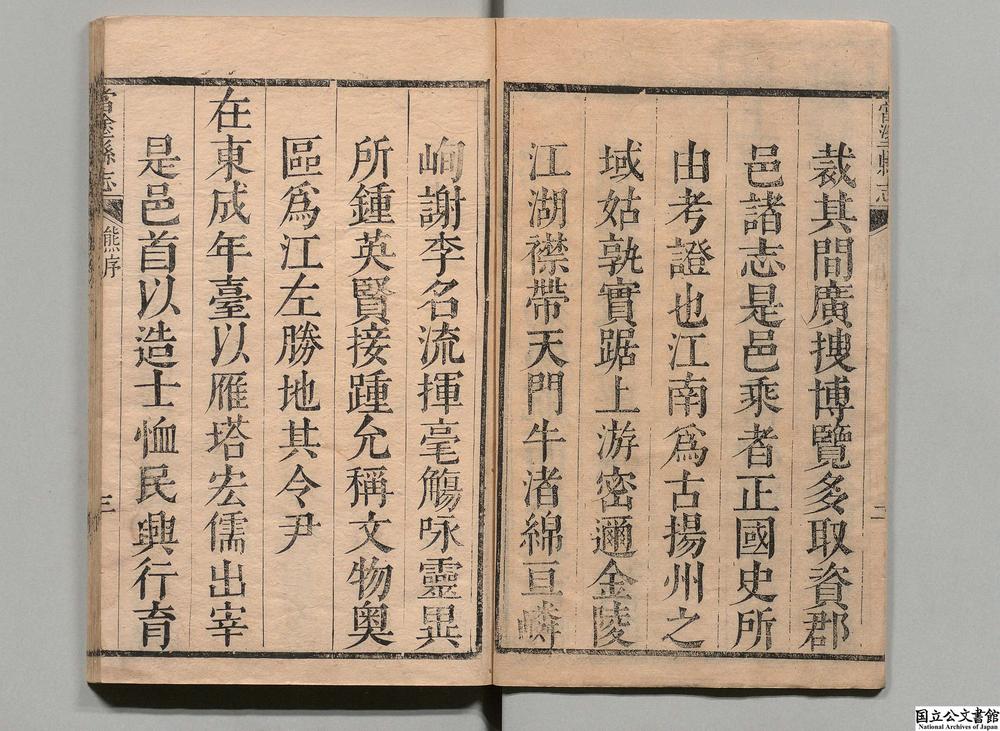 當塗縣志
二
裁其間廣搜博覽多取資郡
邑諸志是邑乘者正國史所
由考證也江南爲古揚州之
域姑孰實踞上游密邇金陵
江湖襟帶天門牛渚綿亘嶙
峋謝李名流揮毫觴咏靈異
所鍾英賢接踵允稱文物奥
區爲江左勝地其令尹
在東成年臺以雁塔宏儒出宰
是邑首以造士恤民興行育
當塗縣志
熊序
三
国立公文書館
National Archives of Japan